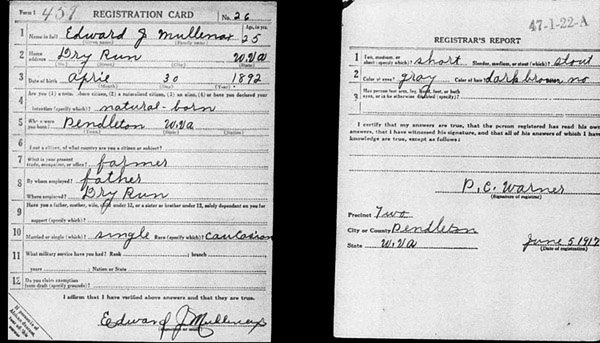 Form 1 457 REGISTRATION CARD No. 26
1 Name in full Edward J Mullenax Age, in yrs 25
(Given name) (Family name)
2 Home address Dry Run W.Va
(No.) (Street) (City) (State)
3 Date of birth April 30 1892
(Month) (Day) (Year)
4 Are you (1) a natural-born citizen, (2) a naturalized citizen, (3) an alien, (4) or have you declared your
intention (specify which)? natural-born
5 Where were you born? Pendleton W.Va
(Town) (State) (Nation)
6 If not a citizen, of what country are you a citizen or subject?
7 What is your present trade, occupation, or office? farmer
8 By whom employed? father
Where employed? Dry Run
9 Have you a father, mother, wife, child under 12, or a sister or brother under 12, solely dependent on you for
support (specify which)?
10 Married or single (which)? single Race (specify which)? caucasion
11 What military service have you had? Rank ; branch
years ; Nation or State
12 Do you claim exemption from draft (specify grounds)?
I affirm that I have verified above answers and that they are true.
Edward J Mullenax
(Signature or mark)
47-1-22-A
REGISTRAR'S REPORT
1 Tall, medium, or short (specify which)? short Slender, medium, or stout (which)? stout
2 Color of eyes? gray Color of hair? dark brown no
3 Has person lost arm, leg, hand, foot, or both
eyes, or is he otherwise disabled (specify)?
I certify that my answers are true, that the person registered has read his own
answers, that I have witnessed his signature, and that all of his answers of which I have
knowledge are true, except as follows:
P. C. Warner
(Signature of registrar)
Precinct Two
City or County Pendleton
State W.Va June 5 1917
(Date of registration)